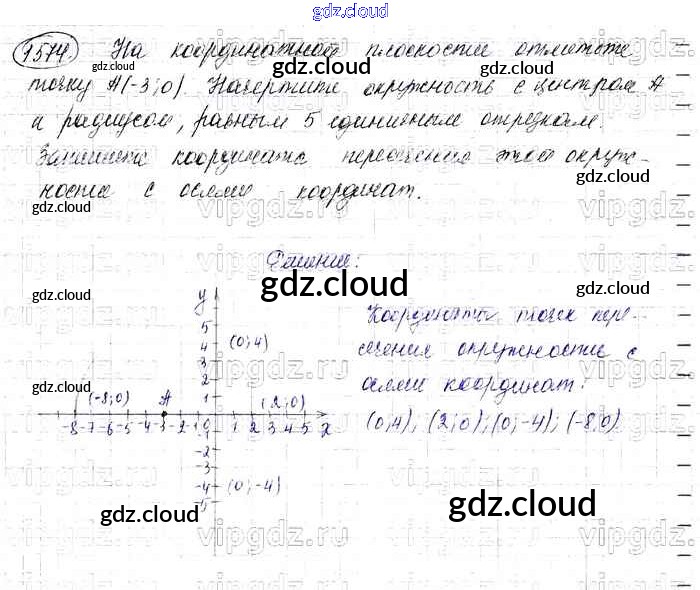 gdz.cloud
1574. На координатной плоскости отметьте
точку А(-3;0). Начертите окружность с центром А
и радиусом, равным 5 единичным отрезкам.
Запишите координаты пересечения этой окруж-
ности с осями координат.
Решение:
Координаты точек пере-
сечения окружности с
осями координат:
(0;4); (2;0); (0;-4); (-8;0)
y
5
4 (0;4)
3
2
1
(-8;0) A (2;0)
-8 -7 -6 -5 -4 -3 -2 -1 0 1 2 3 4 5 x
-1
-2
-3
-4 (0;-4)
-5
gdz.cloud
gdz.cloud
gdz.cloud
gdz.cloud
gdz.cloud
gdz.cloud
gdz.cloud
gdz.cloud
gdz.cloud
gdz.cloud
gdz.cloud
vipgdz.ru
vipgdz.ru
vipgdz.ru
vipgdz.ru